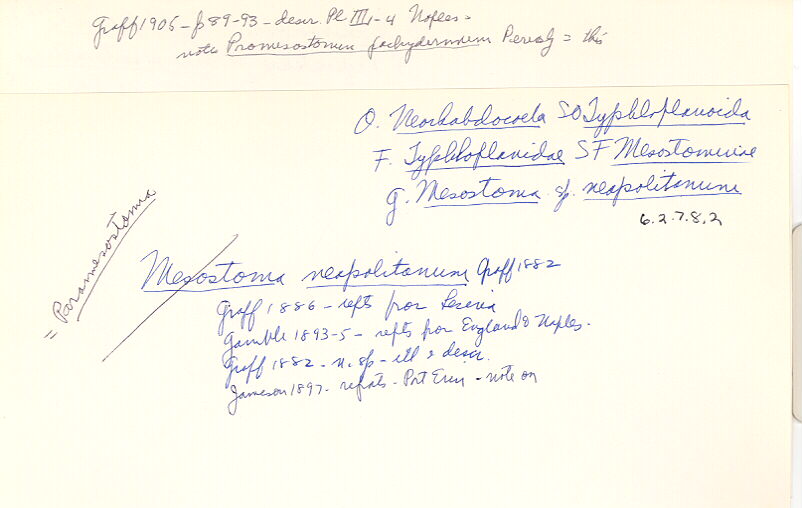 Graff 1905 - p 89-93 - descr. Pl III 1-4 Naples -
note Promesostoma pachydermum Pereasl = this
O. Neorhabdocoela SO Typhloplanoida
F. Typhloplanidae SF Mesostominae
g. Mesostoma sp. neapolitanum
6.2.7.8.2
= Paramesostoma
Mesostoma neapolitanum Graff 1882
Graff 1886 - repts from Lesina
Gamble 1893-5 - repts from England & Naples.
Graff 1882 - n. sp - ill & descr.
Jameson 1897 - repts - Port Erin - note on